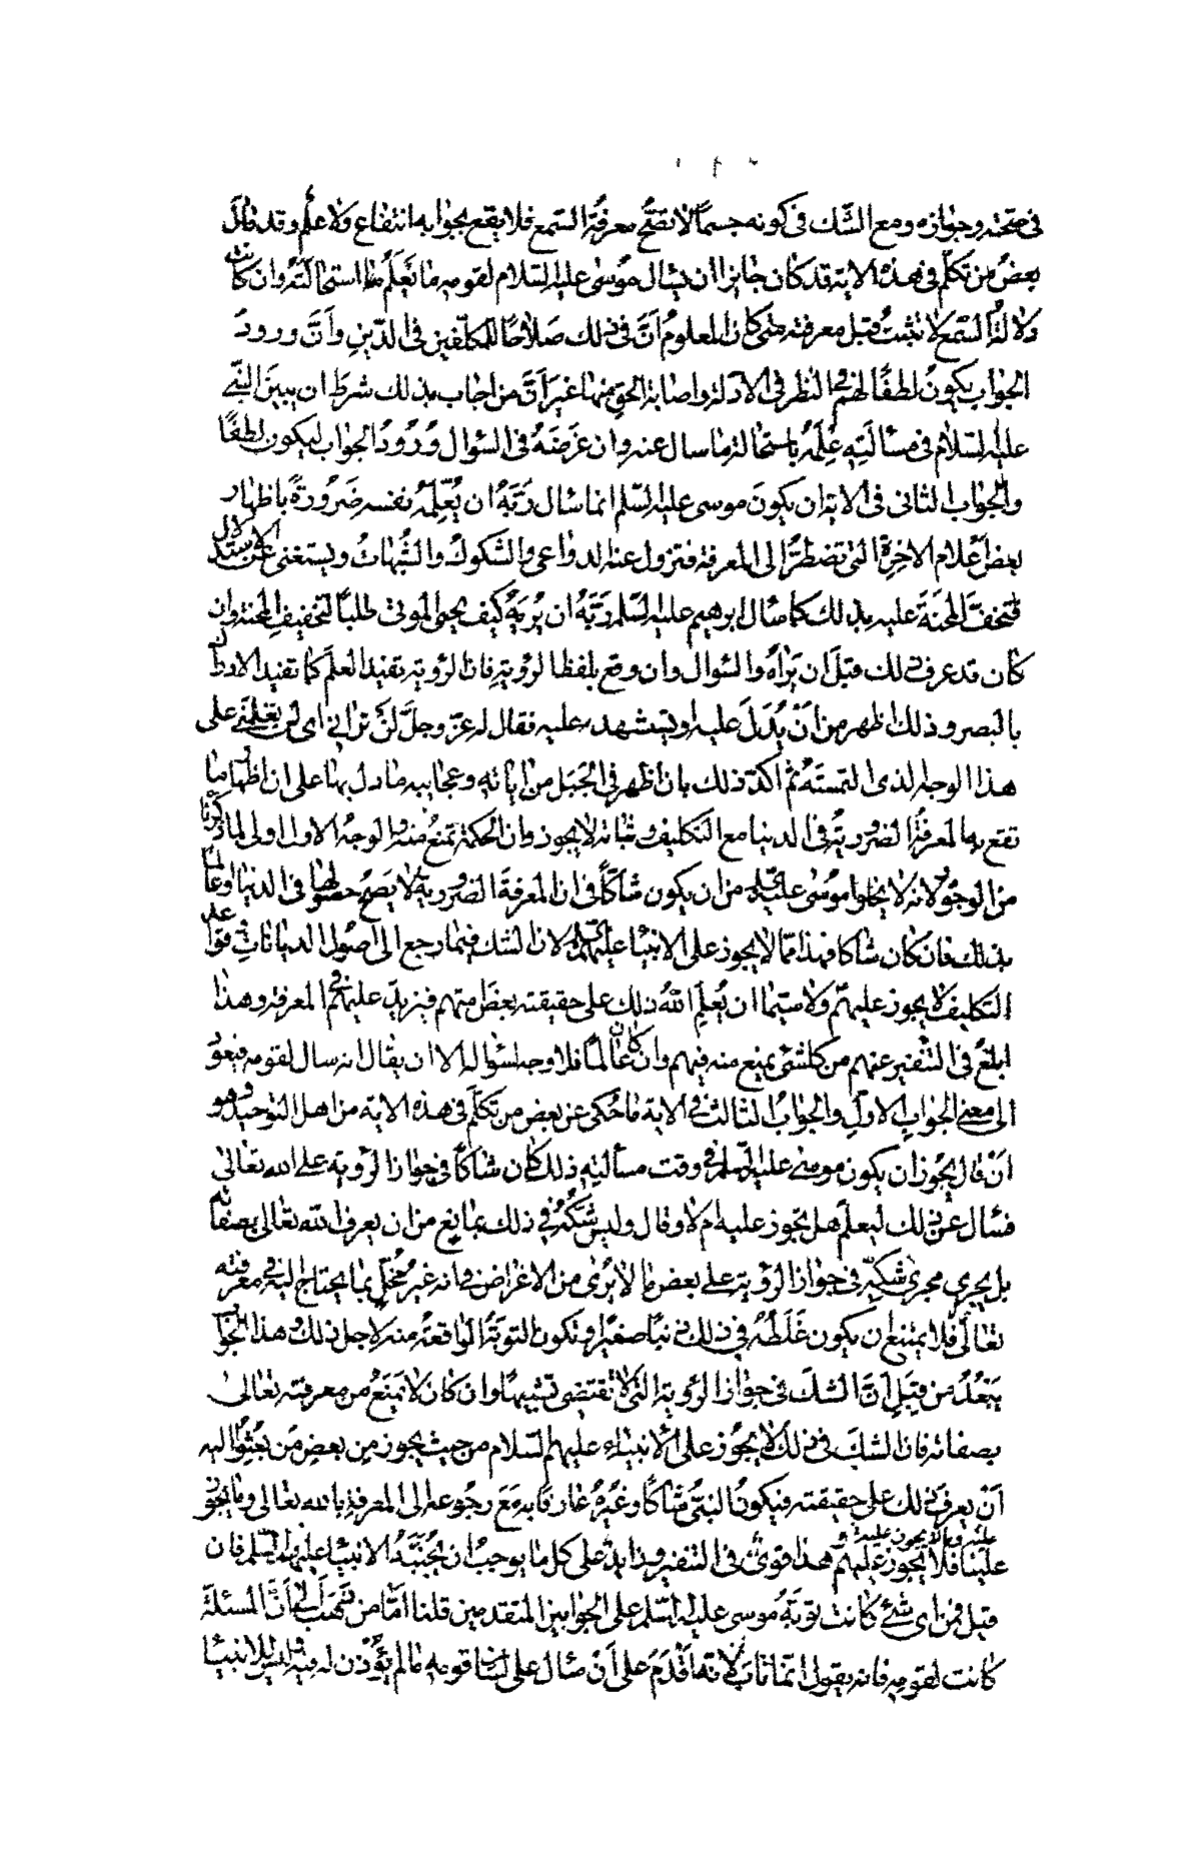 في صحته وجوازه ومع الشّك في كونه جسماً لا تصحّ معرفة السّمع فلا يقع بجوابه انتفاع ولا علم وقد قال
بعضُ من تكلّم في هذه الاية قد كان جايزاً ان يسال موُسىٰ عليه السّلام لقومه ما يَعلَمُ استحالته وان كانت
دلالة السّمع لا تثبتُ قبل معرفته متى كان المعلومُ اَنّ في ذلك صَلاحًا للمكلّفين في الدّينِ وَاَنَّ ورودَ
الجوابِ يكونُ لطفًا لهم في النظر في الادلة واصابة الحقِ منها غيرَ اَنّ من اجاب بذلك شرطَ ان يبين النّبي
عليه السّلام في مسألَتِهِ عِلمَهُ باستحالة ما سال عنه وان غرَضَهُ في السّؤال وُرُودُ الجواب ليكون لطفًا
والجواب الثانى في الاية ان يكونَ موسى عليه السّلم انما سَال رَبَّهُ ان يُعَلِّمَهُ نفسه ضَرُورةً باظهار
بعض اَعلام الاخِرةِ التى تضطرّ الى المعرفة فتزول عنه الدواعى والشّكوكُ والشُّبهاتُ ويستغنى عن الاستدلال
فتخفّ المحنَةَ عليه بذلك كما سَال ابرهيم عليه السّلم رَبَّهُ ان يُريَهُ كيف يحيى الموتى طلبًا لتخفيفِ المحنة وان
كان قد عرف ذلك قبلَ ان يَراهُ والسّوال وان وقع بلفظ الرؤيةِ فان الرؤية تفيد العلمَ كما تفيد الادراك
بالبصر وذلك اظهر من اَنْ يُدَلَ عليه او يستشهد عليه فقال له عزّ وجلَّ لَنْ تراني اى لن تعلمني على
هذا الوجه الذى التمستَهُ ثم اكدّ ذلك بان اظهر في الجَبَل من اياته وعجايبه ما دل بها على ان اظهار ما
تقع به المعرفةُ الضروريّةُ في الدنيا مع التكليف وبيانه لا يجوز وان الحكمة تمنعُ منه والوجهُ الاول اولى لما ذكرنا
من الوجوه لانه لا يخلوا موُسىٰ عليه السّلم من ان يكون شاكّاً في ان المعرفةَ الضروريّة لا يَصحُ حصُولها في الدنيا او عالما
بذلك فان كان شاكا فهذا ممّا لا يجوز على الانبيَا عليهم السّلم لان الشك فيما رجع الى اُصُول الديانات وقواعد
التكليف لا يجوز عليهم ولا سيّما ان يُعلِمَ اللهُ ذلك على حقيقته بعضَ امتهم فيزيد عليهم في المعرفة وهذا
ابلغُ في التّنفير عنهم من كل شئ يمنع منه فيهم وان كان عالمًا فلا وجه لسؤاله الا ان يقال انه سال لقومه فيعود
الى معنى الجوابِ الاولِ والجوابُ الثالث في الاية ما حُكى عن بعض من تكلّم في هذه الاية من اهل التوحيد وهو
اَنْ قال يجُوز ان يكون موسىٰ عليه السّلم في وقت مسألتِهِ ذلك كان شاكاً في جواز الرّؤية على الله تعالىٰ
فسَال عن ذلك ليعلمَ هل يجوز عليه ام لا وقال وليس شكّهُ في ذلك بمانع من ان يعرف الله تعالى بصفاته
بل يجرى مجرىٰ شكّهِ في جواز الرؤية على بعض ما لا يُرىٰ من الاعراض في انه غيرُ مُخلٍ بما يحتاج اليه في معرفته
تعالىٰ فلا يمتنع ان يكون غَلَطُهُ في ذلك ذنبًا صغيراً وتكون التوبَةُ الواقعةُ منه لاجل ذلك وهذا الجواب
يَبعُدُ من قِبَلِ اَنَّ الشكَ في جواز الرؤية التى لا تقتضى تشبيهاً وان كان لا يَمنَعُ من معرفته تعالىٰ
بصفاته فان الشكَ في ذلك لا يَجُوز على الانبياء عليهم السّلام من حيث يجوز من بعضِ مَن بُعِثُوا اليه
اَنْ يعرف ذلك على حقيقته فيكونُ النبّى شاكّاً وغَيرُهُ عارفًا به مَعَ رجوعه الى المعرفة بالله تعالى وما يجوز
عليه وما لا يجوز عليه
علينا فلا يجوز عليهم وهذا قوىٌ في التنفير وزايدٌ على كل ما يوجبُ ان يُجنَّبَهُ الانبيَا عليهم السّلم فان
قيل فمن اى شئ كانت توبَةُ موسى عليه السّلم على الجوابين المتقدمين قلنا امّا من ذهَبَ الى اَنَّ المسئلة
كانت لقومِهِ فانه يقول انّما تابَ لانّه اَقْدَمَ على اَنْ سَال على لسان قومه ما لم يُؤذن له فيه وليس للانبيَا